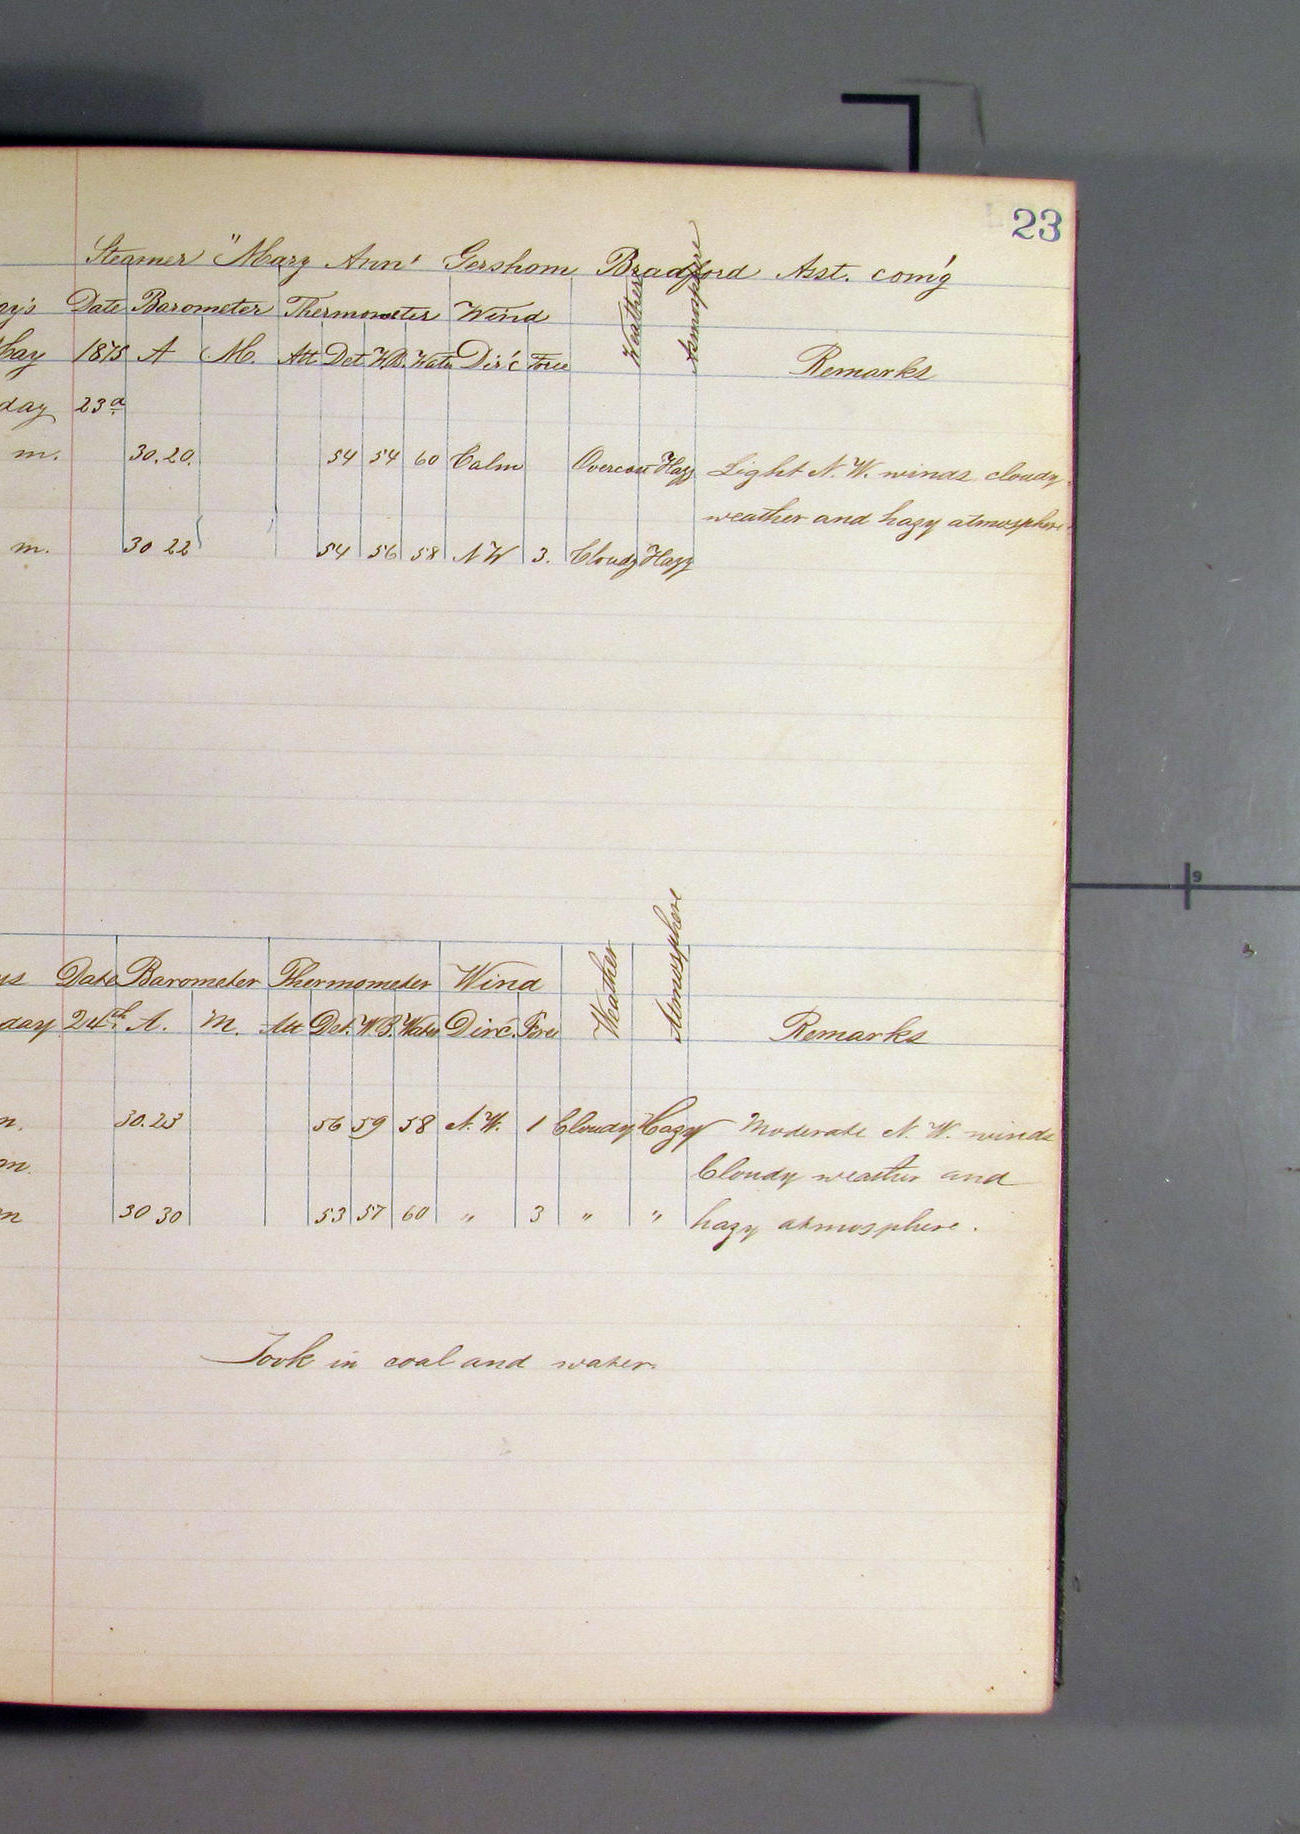 23
Steamer "Mary Ann" Gershom Bradford Asst. com'g
Date Barometer Thermometer Wind Weather Atmosphere
1875 A M. Att Det W.B. Water Dir'c Force Remarks
day 23d
m. 30.20. 54 54 60 Calm Overcast Hazy Light N. W. winds cloudy
weather and hazy atmosphere.
m. 30 22 54 56 58 N W 3. Cloudy Hazy
Date Barometer Thermometer Wind Weather Atmosphere
day 24th A. M. Att Det. W.B. Water Dir'c. Force Remarks
30.23 56 59 58 N. W. 1 Cloudy Hazy Moderate N. W. winds
m. Cloudy weather and
30 30 53 57 60 " 3 " " hazy atmosphere.
Took in coal and water.
9